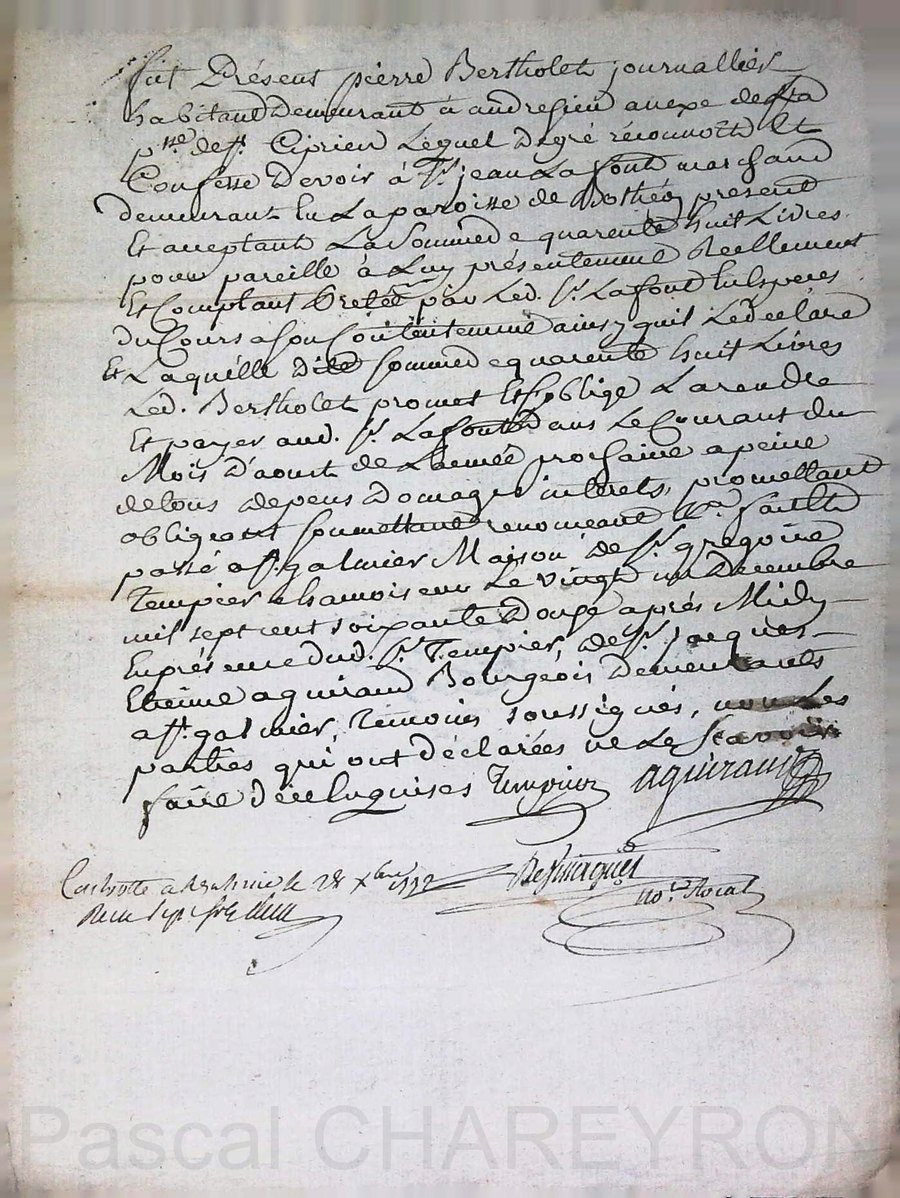 fut Présent pierre Bertholet journallier
habitant Demeurant à andresieu anexe de la
psse de st. Ciprien Lequel de gré reconnoit Et
Confesse Devoir à Sr. jean La font marchand
demeurant En La paroisse de Bothéon present
Et acceptant La Somme de quarente huit Livres
pour pareille à Luy présentement Réellement
Et Comptant Pretée par Led. Sr. La font En Especes
du Cours a son Contentement ainsy quil Le declare
Et Laquélle dite somme de quarente huit Livres
Led. Bertholet promet Et soblige La rendre
Et payer aud. Sr. La font Dans Le Courant du
Mois D'aoust de L'année prochaine a peine
de tous depens Domages interets, promettant
obligeant soumettant renonceant
passé a st. galmier Maison de Sr. gregoire
Tempier chamoiseur Le vingt un Decembre
mil sept cent soixante Douze après Midy
En présence dud. Sr. Tempier, de Sr. jacques
Etienne aguiraud Bourgéois Demeurants
a st. galmier, temoins soussignés, non Les
parties qui ont déclarées ne Le scavoir
faire De ce Enquises Tempier aguiraud
Controllé a le 28 xbre 1772
Recu sept sols
no.re Royal